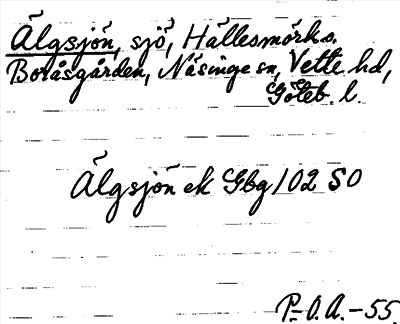 Älgsjön, sjö, Hällesmörk s.
Boråsgården, Näsinge sn, Vette hd,
Göteb. l.
Älgsjön ek Gbg 102 SO
P.-O.A.-55.